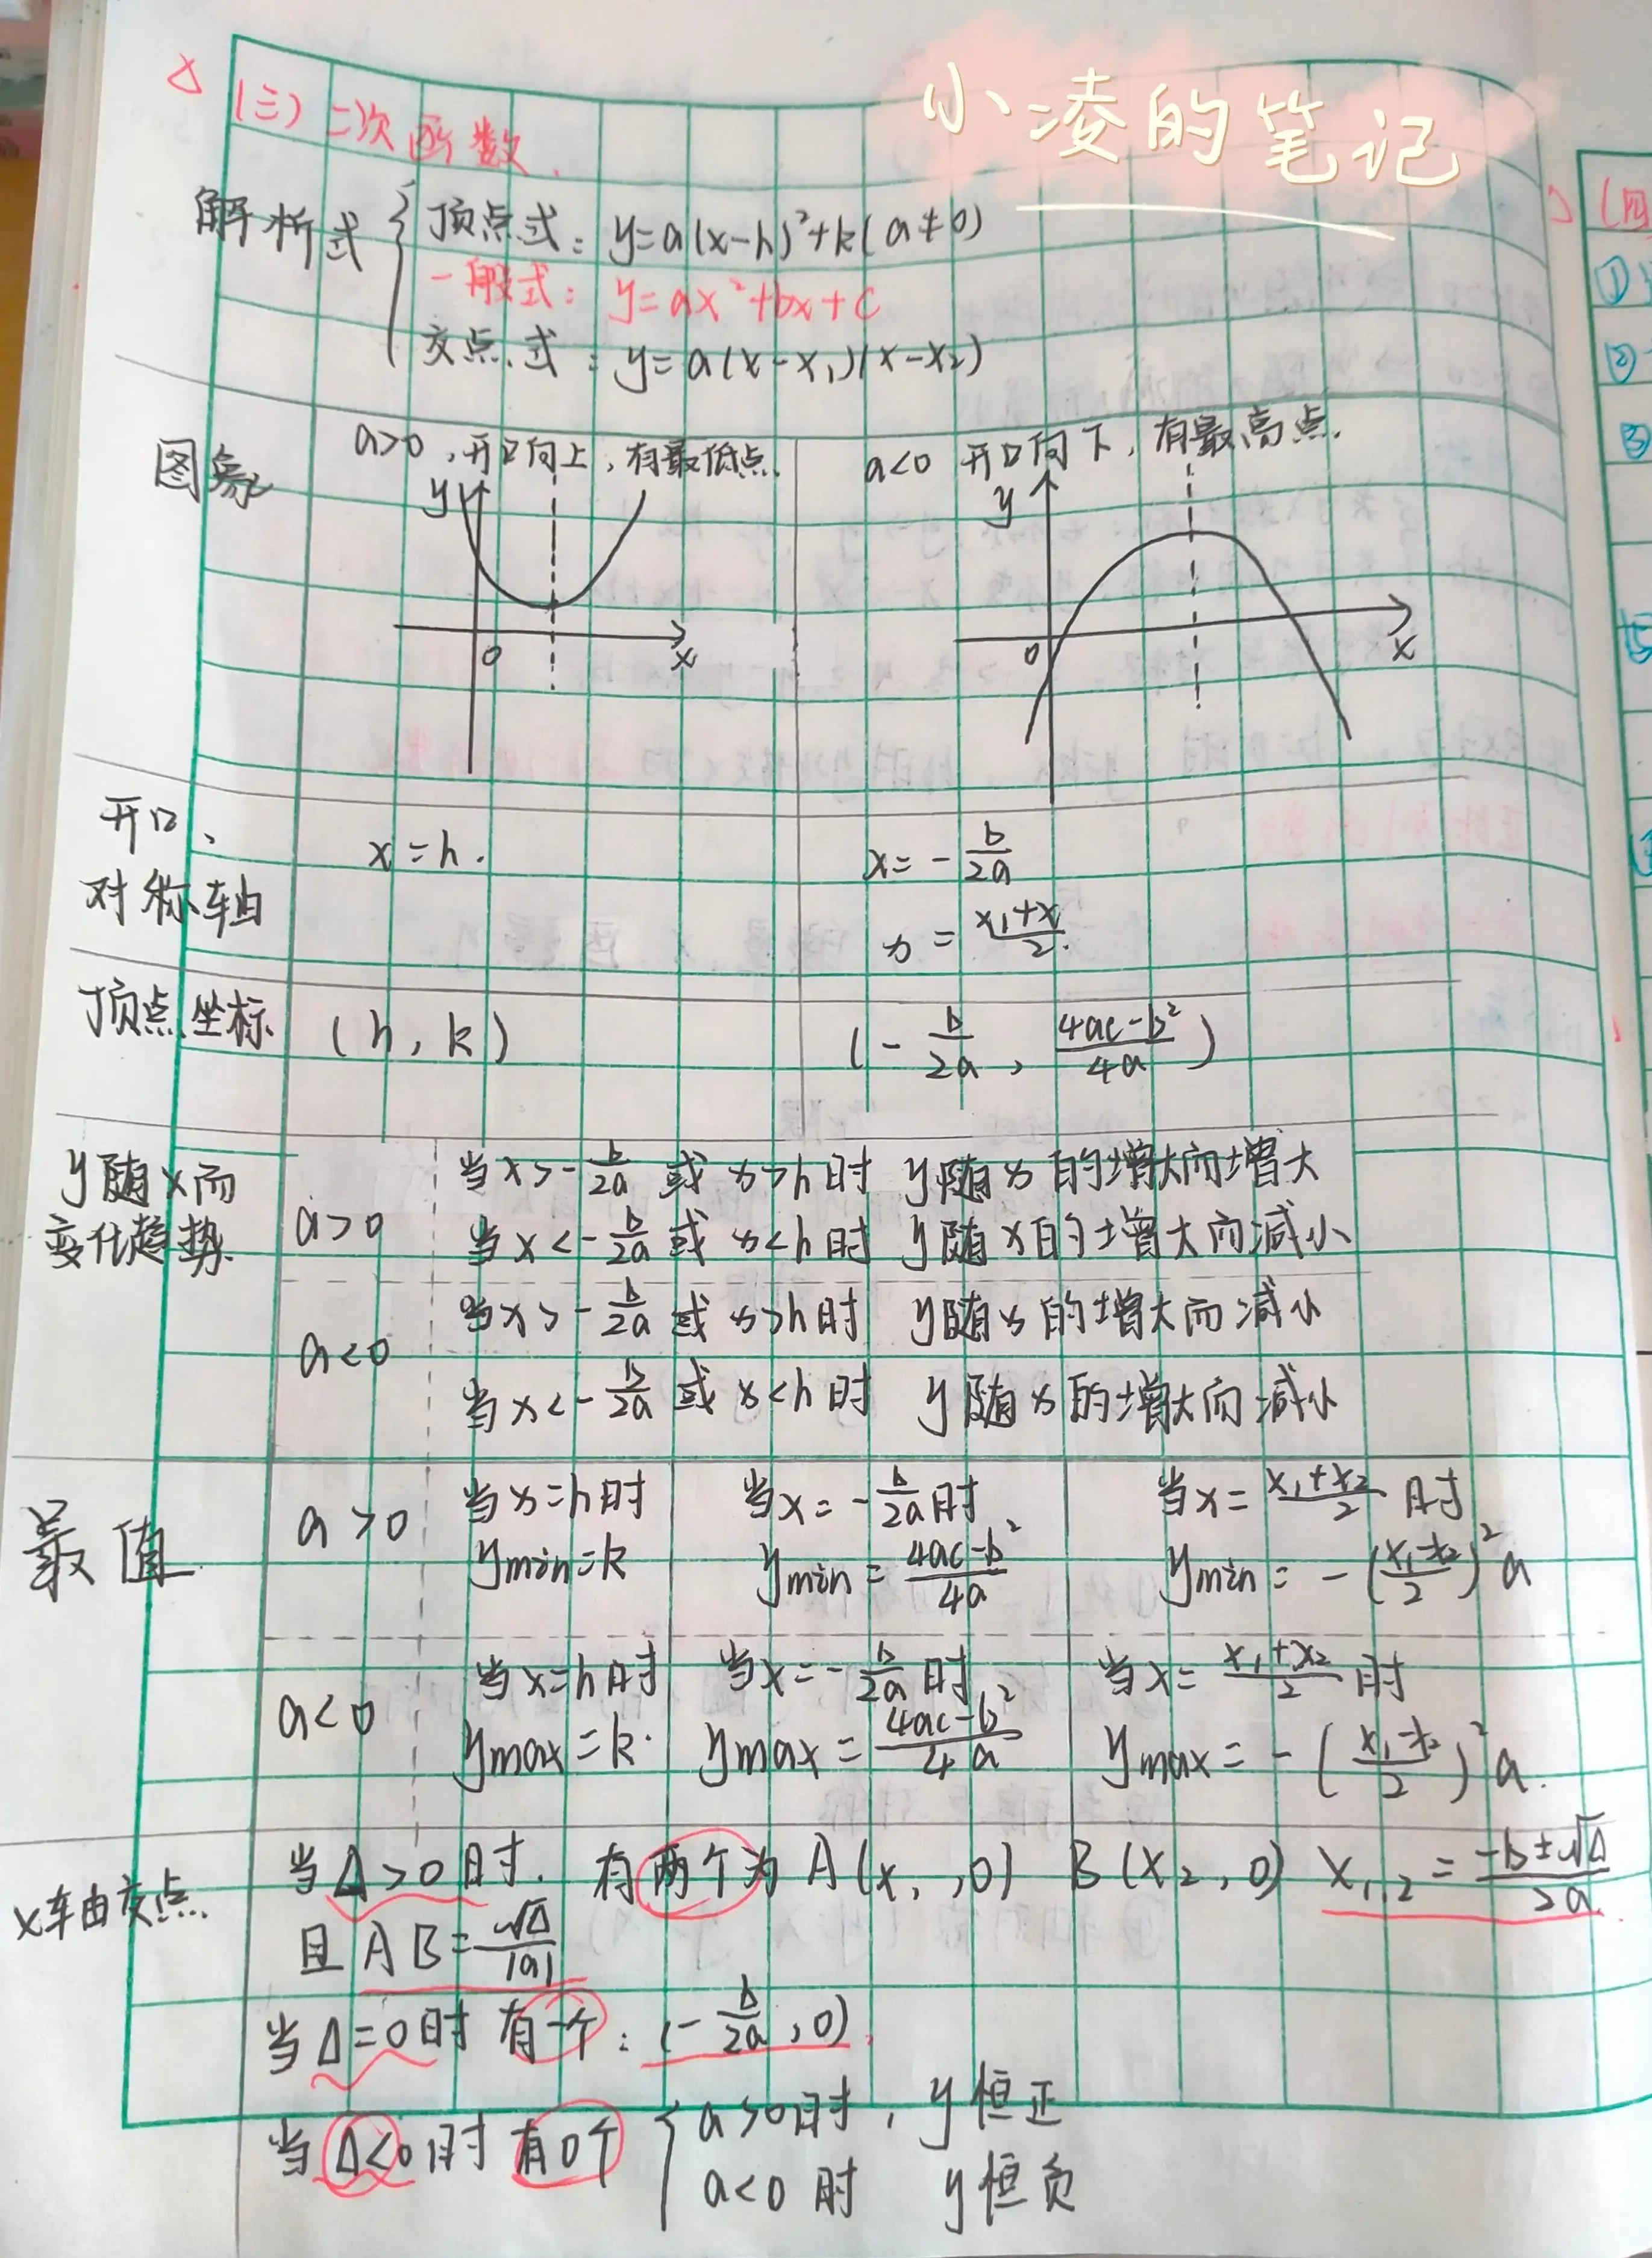 小凌的笔记
(三) 二次函数.
解析式 { 顶点式: y=a(x-h)²+k(a≠0)
一般式: y=ax²+bx+c
交点式: y=a(x-x₁)(x-x₂)
图象
a>0, 开口向上, 有最低点.
a<0 开口向下, 有最高点.
y
0
x
y
0
x
开口、
对称轴
x=h.
x=-b/2a
x=(x₁+x)/2.
顶点坐标 (h, k) (-b/2a, (4ac-b²)/4a)
y随x而
变化趋势
a>0
当x>-b/2a 或 x>h时 y随x的增大而增大
当x<-b/2a 或 x<h时 y随x的增大而减小
a<0
当x>-b/2a 或 x>h时 y随x的增大而减小
当x<-b/2a 或 x<h时 y随x的增大而减小
最值
a>0
当x=h时 当x=-b/2a时 当x=(x₁+x₂)/2时
ymin=k ymin=(4ac-b²)/4a ymin=-((x₁-x₂)/2)²a
a<0
当x=h时 当x=-b/2a时 当x=(x₁+x₂)/2时
ymax=k. ymax=(4ac-b²)/4a ymax=-((x₁-x₂)/2)²a.
x轴交点.
当Δ>0时. 有两个为A(x₁,0) B(x₂,0) x₁,₂=(-b±√Δ)/2a
且AB=√Δ/|a|
当Δ=0时 有一个: (-b/2a, 0)
当Δ<0时 有0个 { a>0时, y恒正
a<0时 y恒负
(四
①
②
③